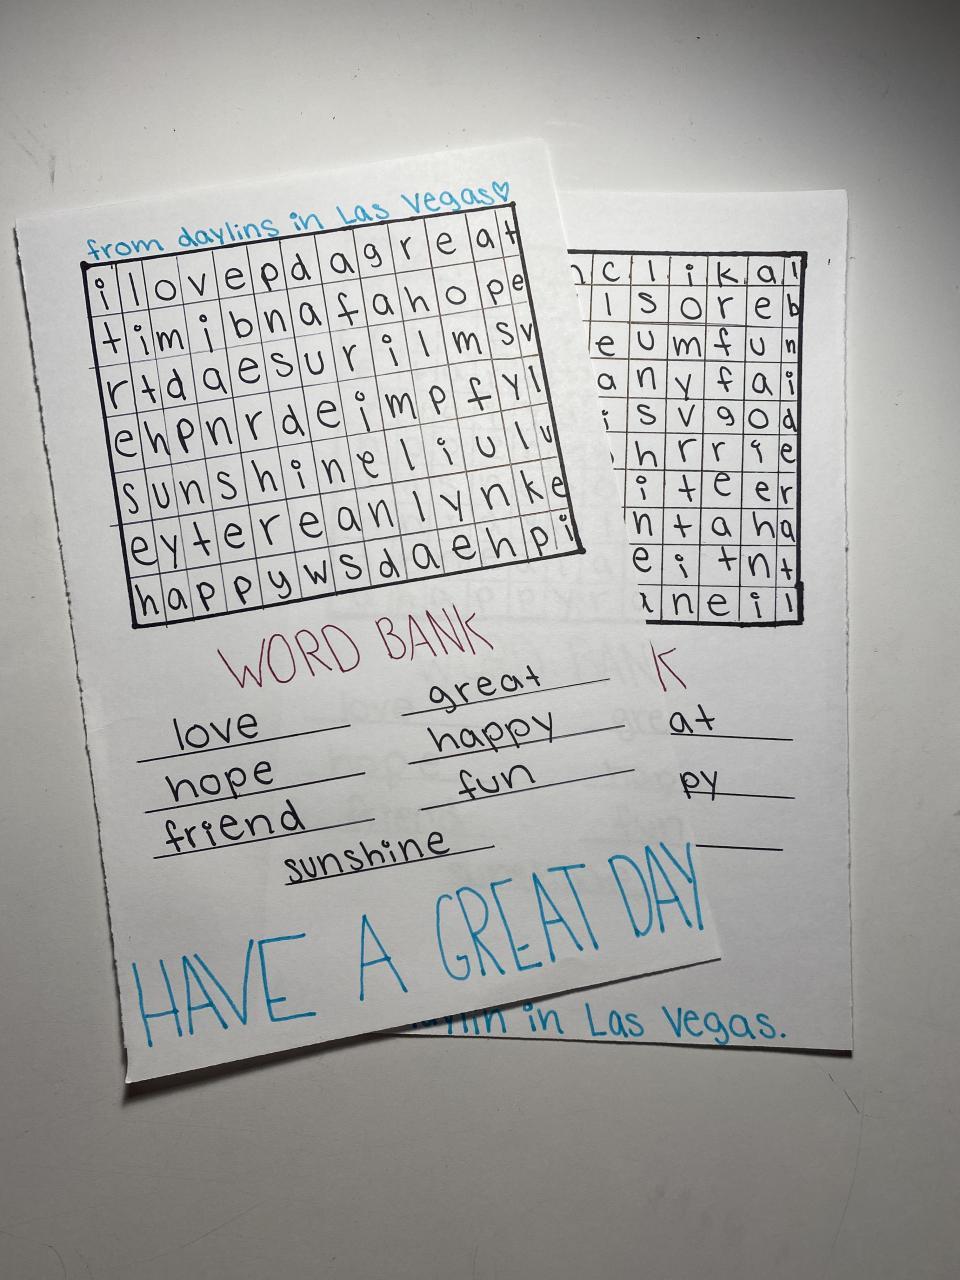 from daylins in Las Vegas♡
i l o v e p d a g r e a t
t i m i b n a f a h o p e
r t d a e s u r i l m s v
e h p n r d e i m p f y l
s u n s h i n e l i u l v
e y t e r e a n l y n k e
h a p p y w s d a e h p i
WORD BANK
love great
hope happy
friend fun
sunshine
HAVE A GREAT DAY
c l i k a l
l s o r e b
e u m f u n
a n y f a i
i s v g o d
h r r i e
i t e e r
n t a h a
e i t n t
n e i l
K
at
py
in Las Vegas.